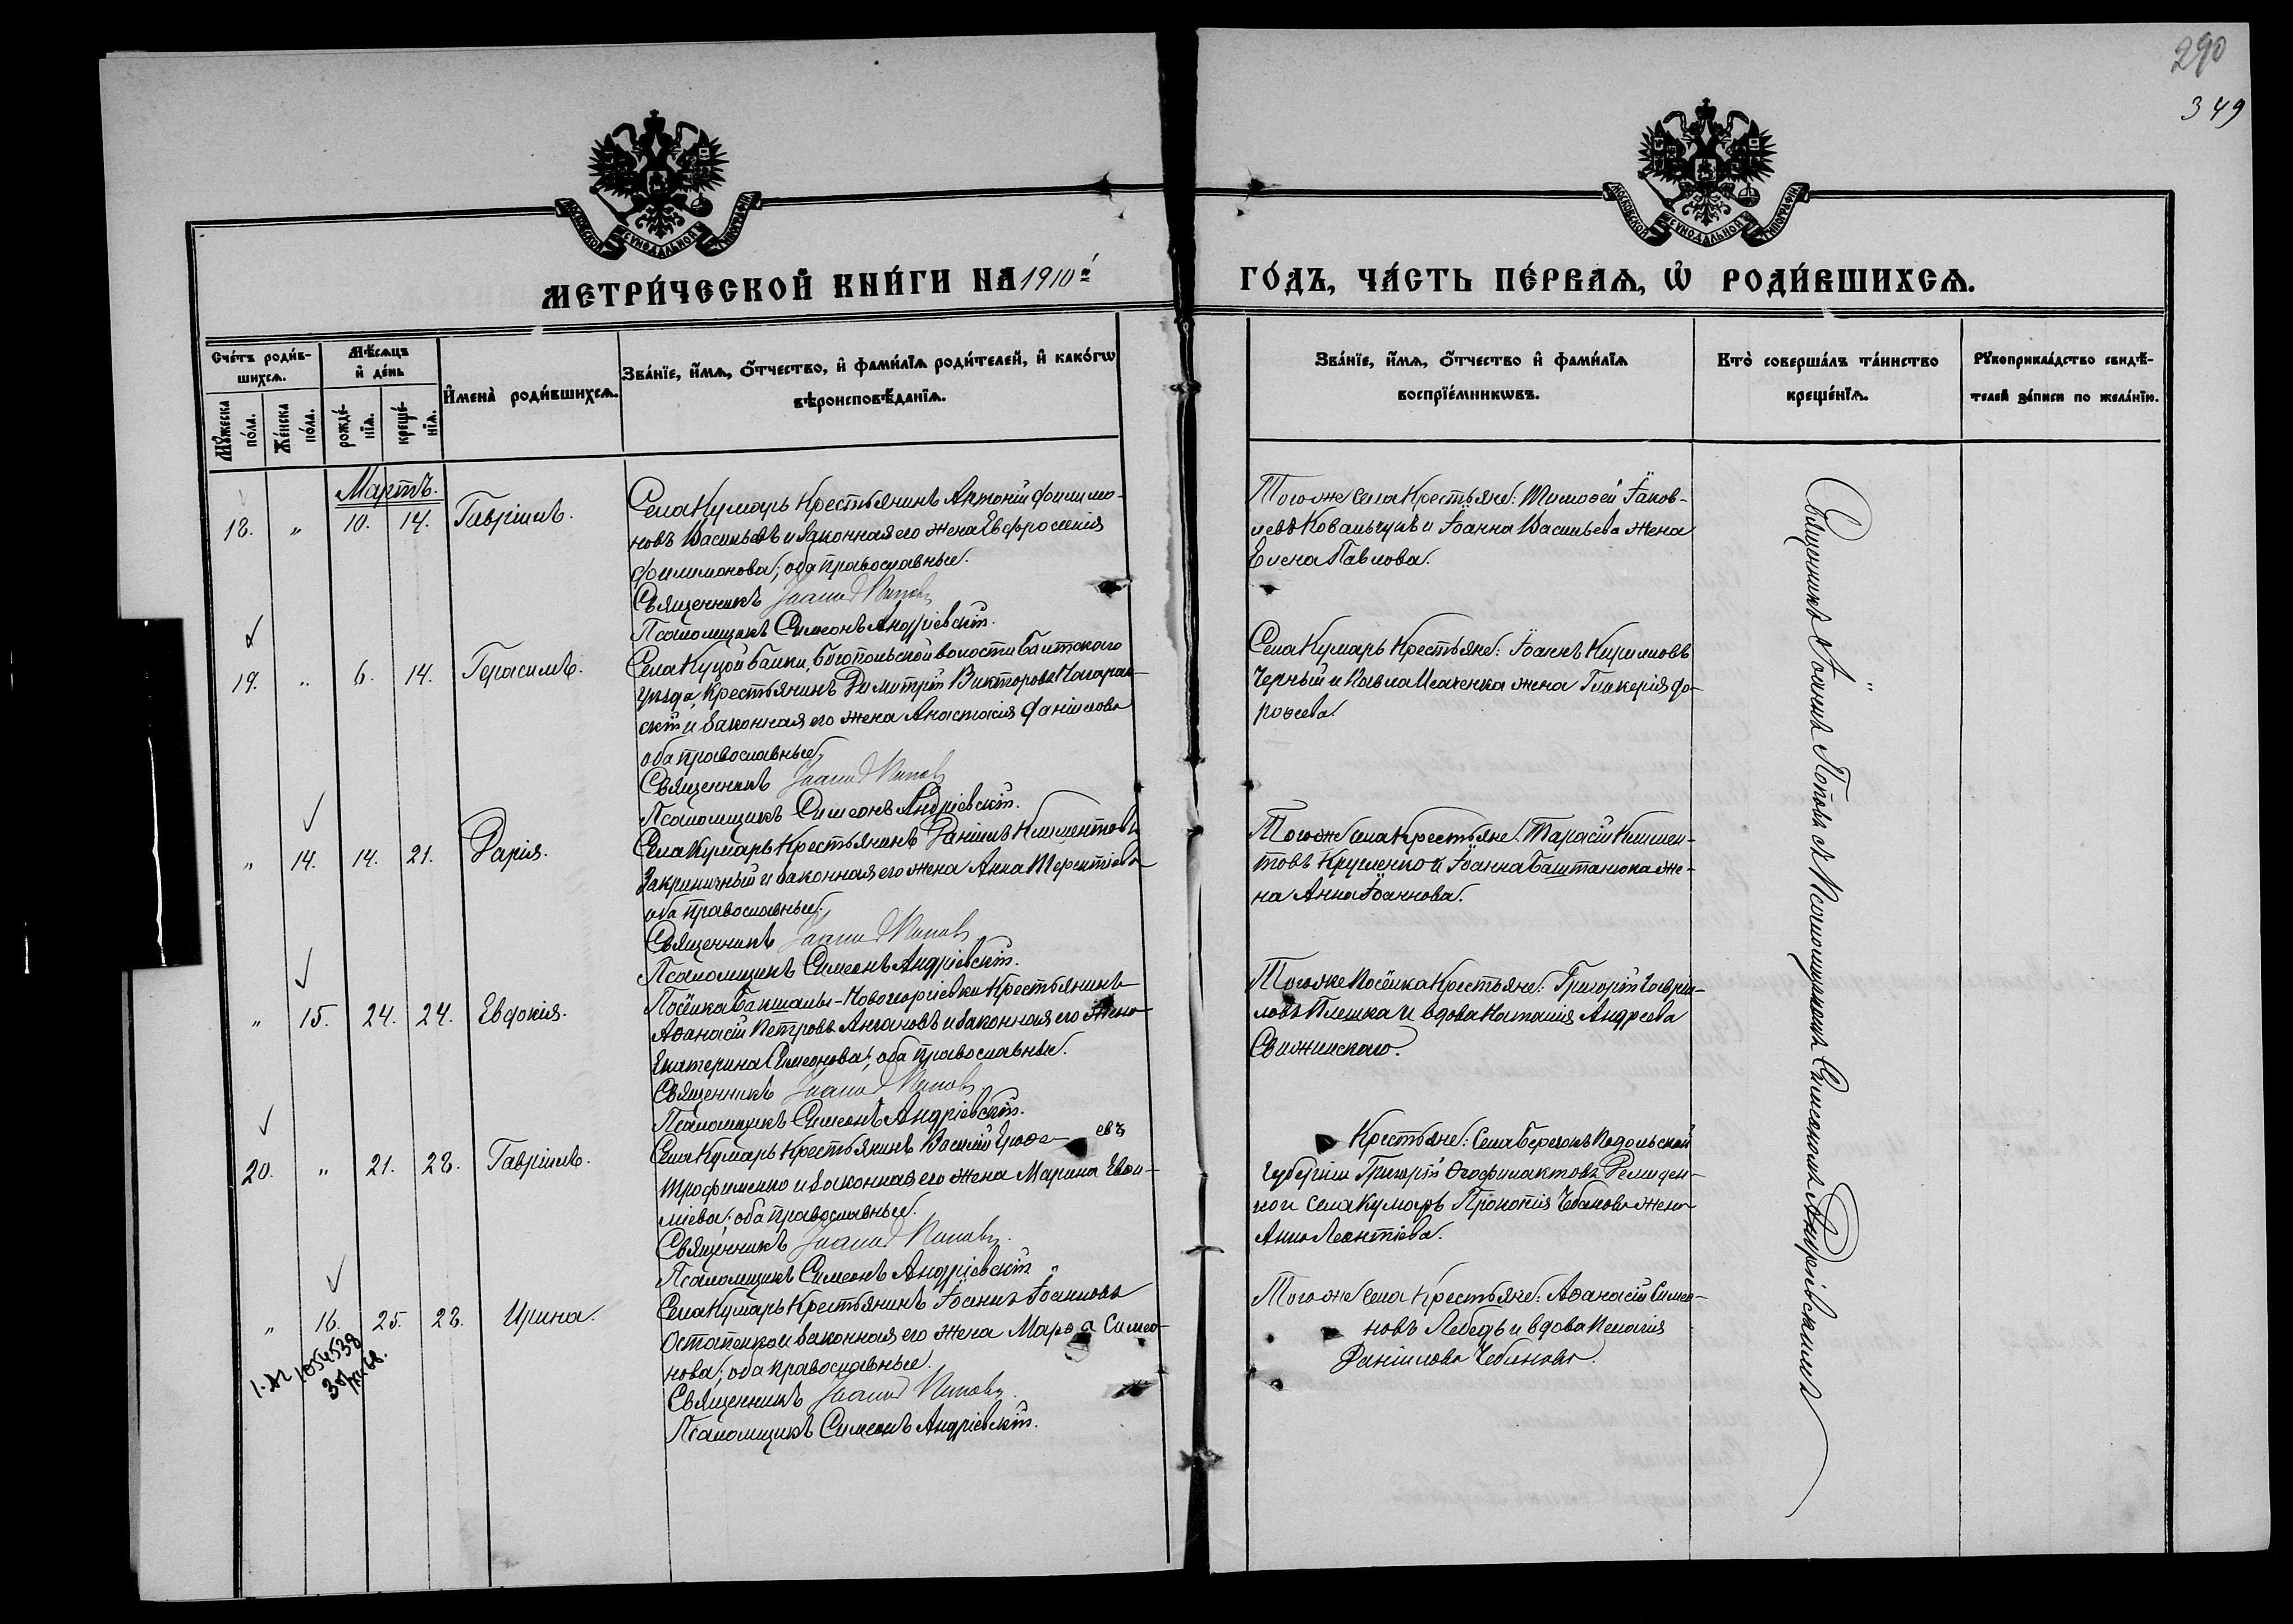 290
349
МОСКОВСКОЙ СѴНОДАЛЬНОЙ ТИПОГРАФІИ
МОСКОВСКОЙ СѴНОДАЛЬНОЙ ТИПОГРАФІИ
МЕТРИ́ЧЕСКОЙ КНИ́ГИ НА 1910й
ГО́ДЪ, ЧА́СТЬ ПЕ́РВАѦ, Ѡ҆ РОДИ́ВШИХСѦ.
Сче́тъ роди́в-
шихсѧ.
Мꙋ́жеска по́ла.
Же́нска по́ла.
Мѣ́сѧцъ
и҆ де́нь
рожде́-
нїѧ.
креще́-
нїѧ.
И҆мена̀ роди́вшихсѧ.
Зва́нїе, и҆́мѧ, ѻ҆́тчество, и҆ фами́лїѧ роди́телей, и҆ како́гѡ
вѣроисповѣ́данїѧ.
Зва́нїе, и҆́мѧ, ѻ҆́тчество и҆ фами́лїѧ
воспрїе́мникѡвъ.
Кто̀ соверша́лъ та́инство
креще́нїѧ.
Рꙋкоприкла́дство свидѣ́-
телей за́писи по жела́нїю.
Мартъ.
18. " 10. 14. Гавріилъ.
Села Кумарь Крестьянинъ Антоній Филимо-
новъ Васильевъ и законная его жена Евфросинія
Филимонова; оба православные.
Священникъ Іоаннъ Поповъ
Псаломщикъ Симеонъ Андріевскій.
Того же села Крестьяне: Тимоѳей Іаков-
левъ Ковальчукъ и Іоанна Васильева жена
Елена Павлова.
19. " 6. 14. Герасимъ.
Села Куцой Балки, Богопольской волости Балтскаго
уѣзда, Крестьянинъ Димитрій Викторовъ
скій и законная его жена Анастасія Даніилова
оба православные.
Священникъ Іоаннъ Поповъ
Псаломщикъ Симеонъ Андріевскій.
Села Кумарь Крестьяне: Іоаннъ Кирилловъ
Черный и Павла Исаченка жена Гликерія До-
роѳеева.
" 14. 14. 21. Дарія.
Села Кумарь Крестьянинъ Даніилъ Климентовъ
Закриничный и законная его жена Анна Терентіева
оба православные.
Священникъ Іоаннъ Поповъ
Псаломщикъ Симеонъ Андріевскій.
Того же села Крестьяне: Тарасій Климен-
товъ и Іоанна Баштанюка же-
на Анна Іоаннова.
" 15. 24. 24. Евдокія.
Посёлка Бакшалы-Новогеоргіевки Крестьянинъ
Аѳанасій Петровъ и законная его жена
Екатерина Симеонова; оба православные.
Священникъ Іоаннъ Поповъ
Псаломщикъ Симеонъ Андріевскій.
Того же Посёлка Крестьяне: Григорій Гаврии-
ловъ Плешка и вдова Наталія Андреева
20. " 21. 28. Гавріилъ.
Села Кумарь Крестьянинъ Василій евъ
Трофименко и законная его жена Марина
оба православные.
Священникъ Іоаннъ Поповъ.
Псаломщикъ Симеонъ Андріевскій
Крестьяне: Села Подольской
Губерніи Григорій Ѳеофилактовъ
и села Кумарь Прокопія Чебанова жена
Анна Леонтіева.
" 16. 25. 28. Ирина.
Села Кумарь Крестьянинъ Іоаннъ Іоанновъ
Остапенко и законная его жена Марѳа Симео-
нова; оба православные.
Священникъ Іоаннъ Поповъ.
Псаломщикъ Симеонъ Андріевскій.
Того же села Крестьяне: Аѳанасій Симео-
новъ Лебедь и вдова Пелагія
Даніилова Чебанова.
Священникъ Іоаннъ Поповъ съ Псаломщикомъ Симеономъ Андріевскимъ
1054538